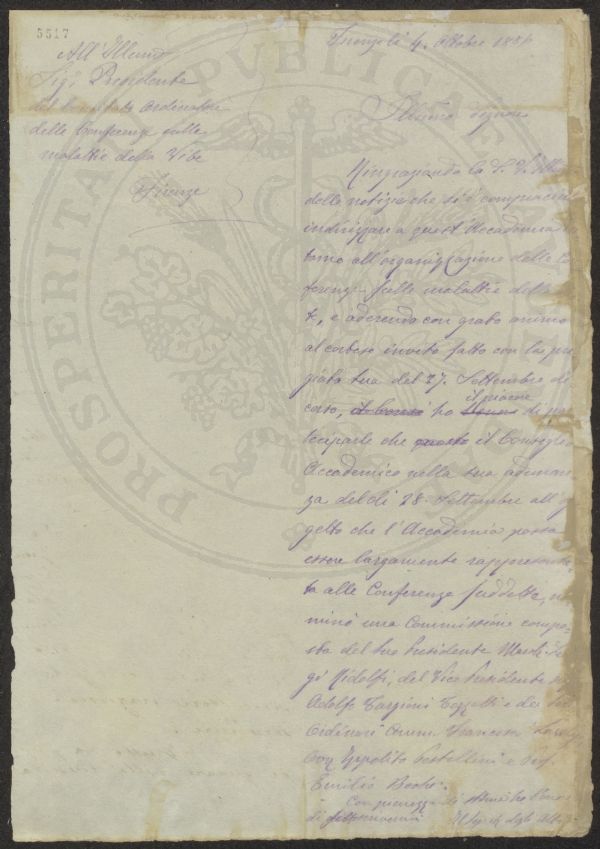 5517
All'Illmo
Sig. Presidente
del Comitato Ordinatore
delle Conferenze sulle
malattie della Vite
Firenze
Firenze li 4. Ottobre
Illmo Signore
Ringraziando la S. V. Illma
delle notizie che si è compiaciuta
indirizzare a quest'Accademia
torno all'organizzazione delle Co
ferenze sulle malattie della
te, e aderendo con grato animo
al cortese invito fatto con la pre
giata sua del 27. Settembre de
corso, ho il piacere di par
teciparle che il Consiglio
Accademico nella sua adunan
za del dì 28. Settembre all'og
getto che l'Accademia possa
essere largamente rappresenta
ta alle Conferenze suddette, no
minò una Commissione compo
sta del suo Presidente March. Lui
gi Ridolfi, del Vice Presidente
Adolfo Targioni Tozzetti e dei
Ordinari Comm. Francesco
Cav. Ippolito Pestellini e Sig.
Emilio Bechi.
Con pienezza di stima ho l'onore
di
PROSPERITAS PVBLICAE